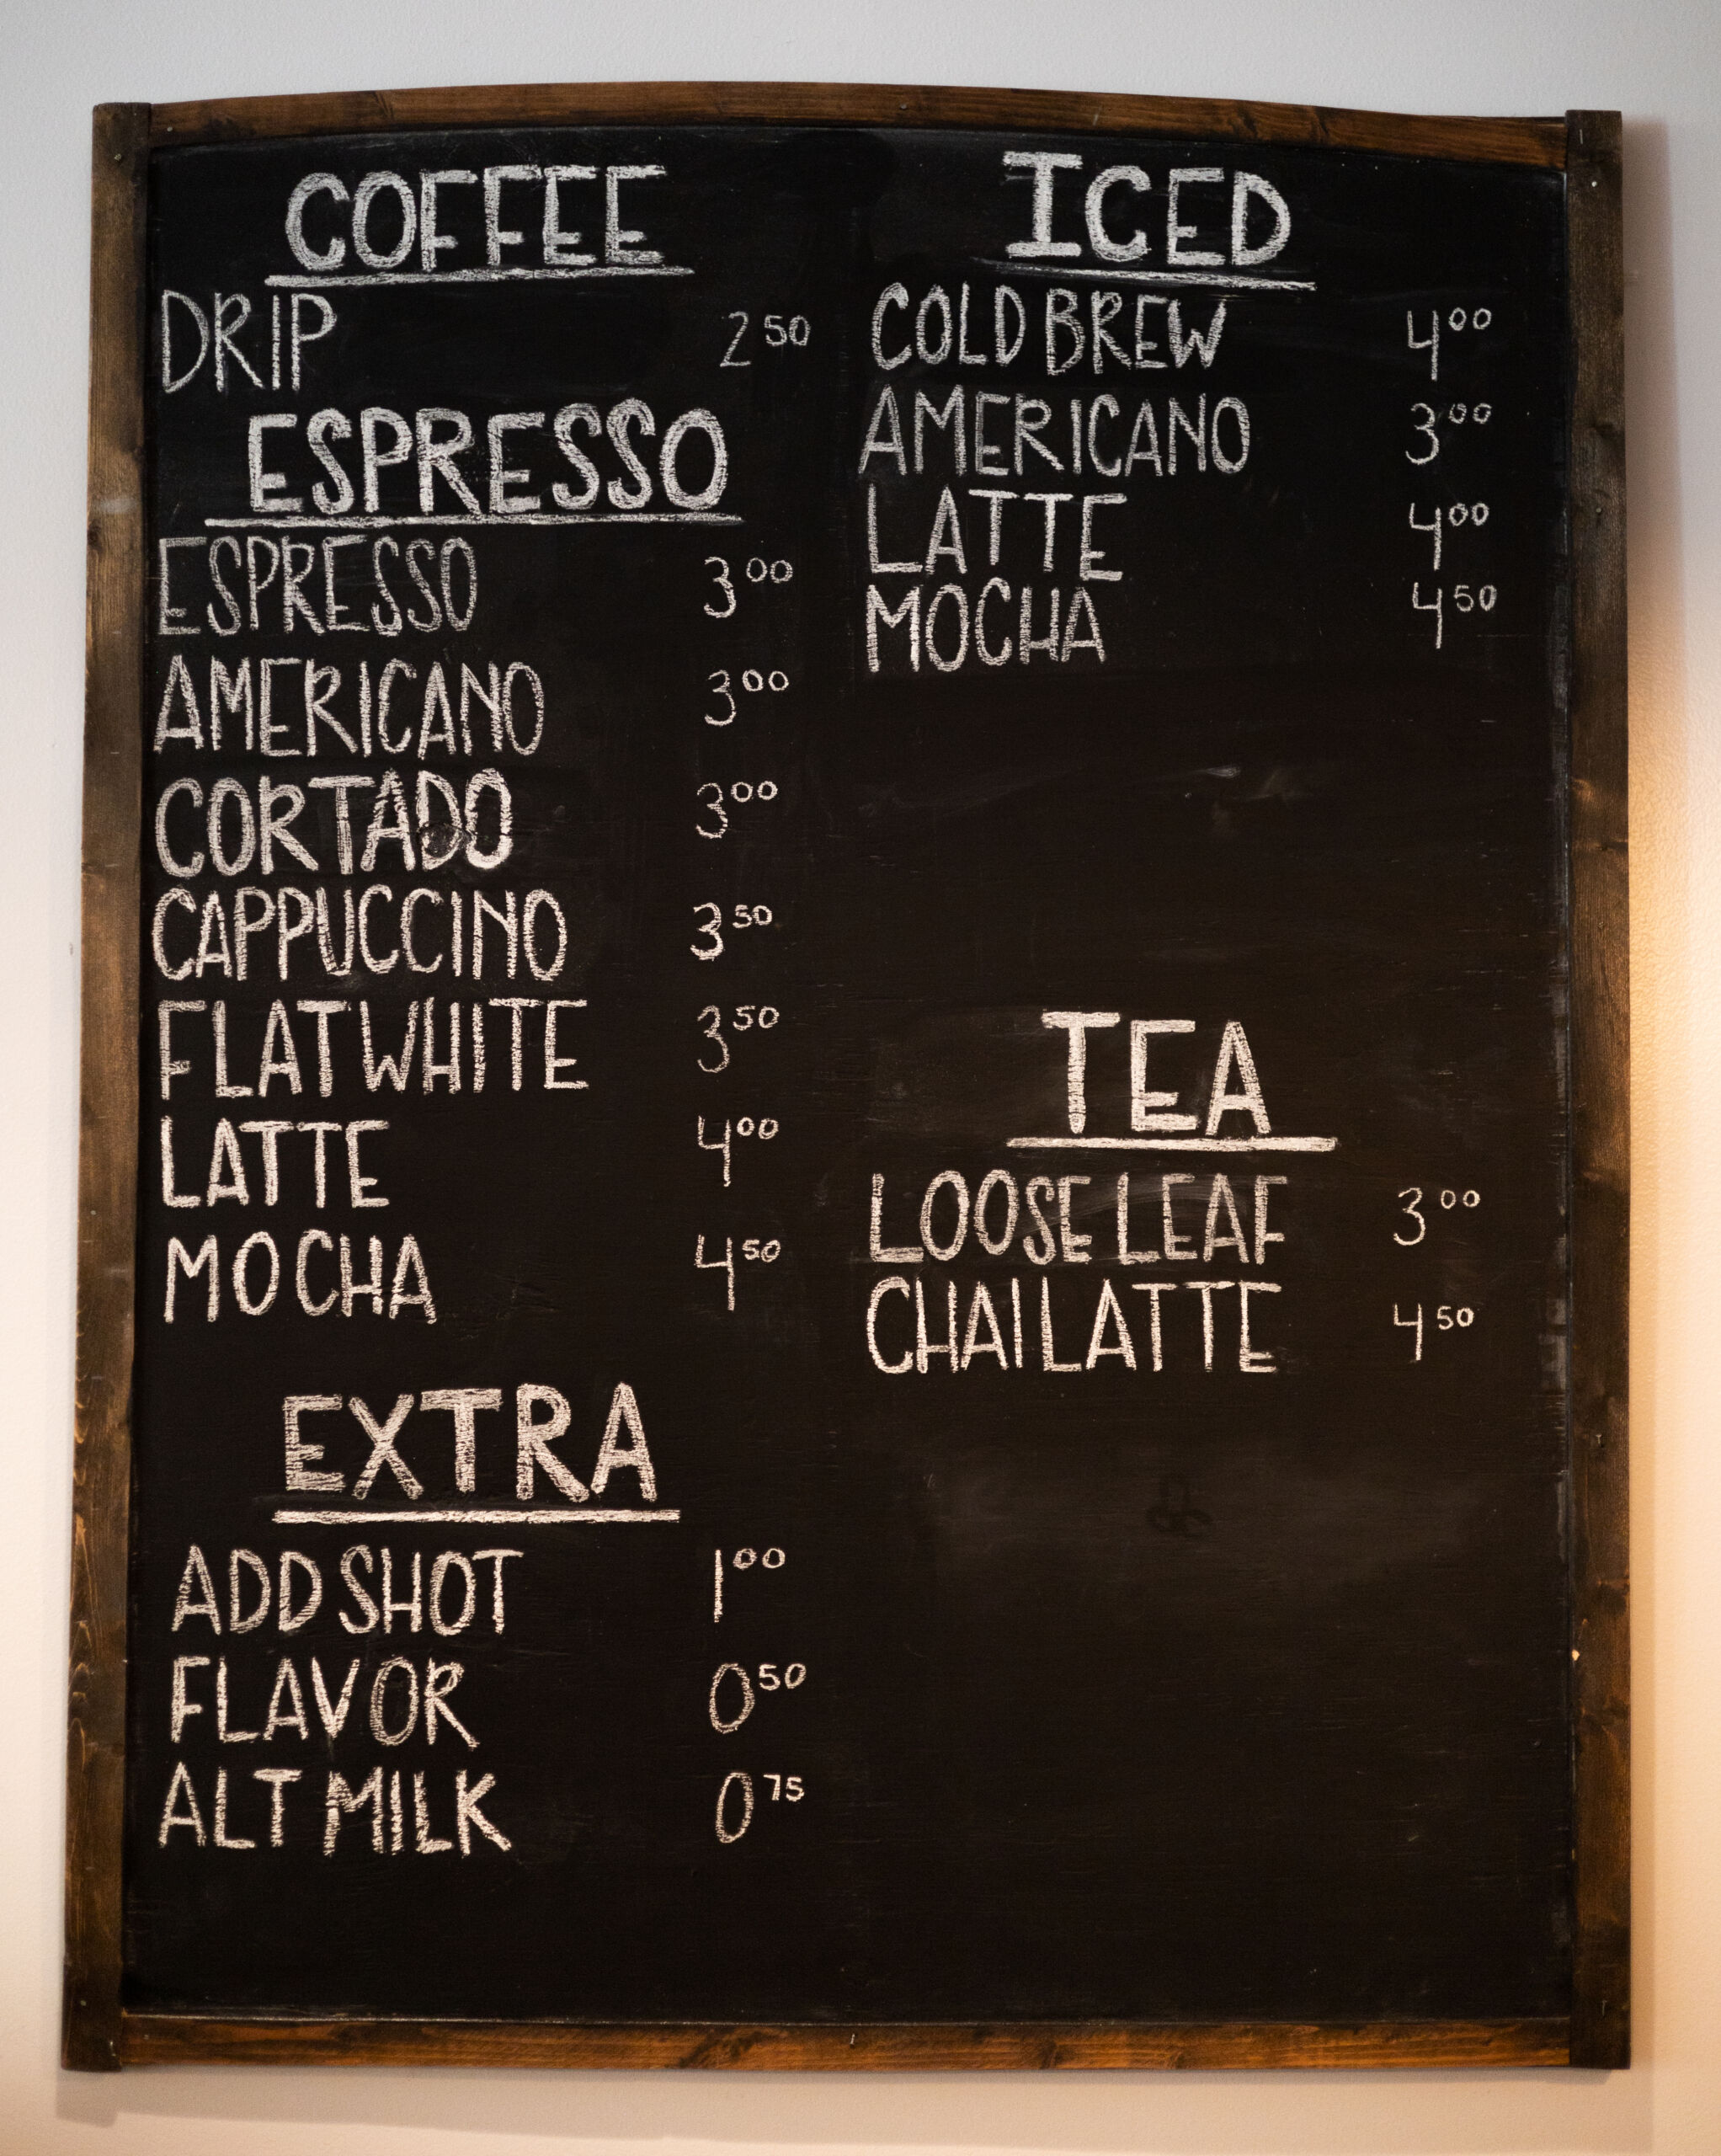 COFFEE
DRIP 2 50
ESPRESSO
ESPRESSO 3 00
AMERICANO 3 00
CORTADO 3 00
CAPPUCCINO 3 50
FLAT WHITE 3 50
LATTE 4 00
MOCHA 4 50
EXTRA
ADD SHOT 1 00
FLAVOR 0 50
ALT MILK 0 75
ICED
COLD BREW 4 00
AMERICANO 3 00
LATTE 4 00
MOCHA 4 50
TEA
LOOSE LEAF 3 00
CHAI LATTE 4 50